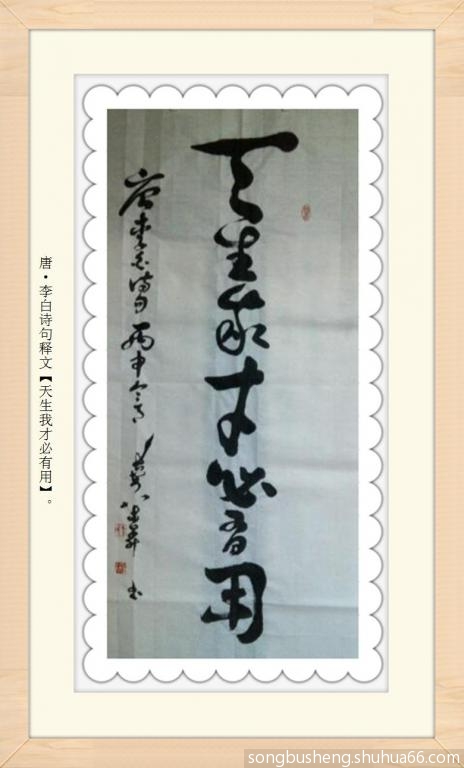 天生我才必有用
唐李白诗句 丙申今月 书
唐·李白诗句释文【天生我才必有用】。
songbusheng.shuhua66.com